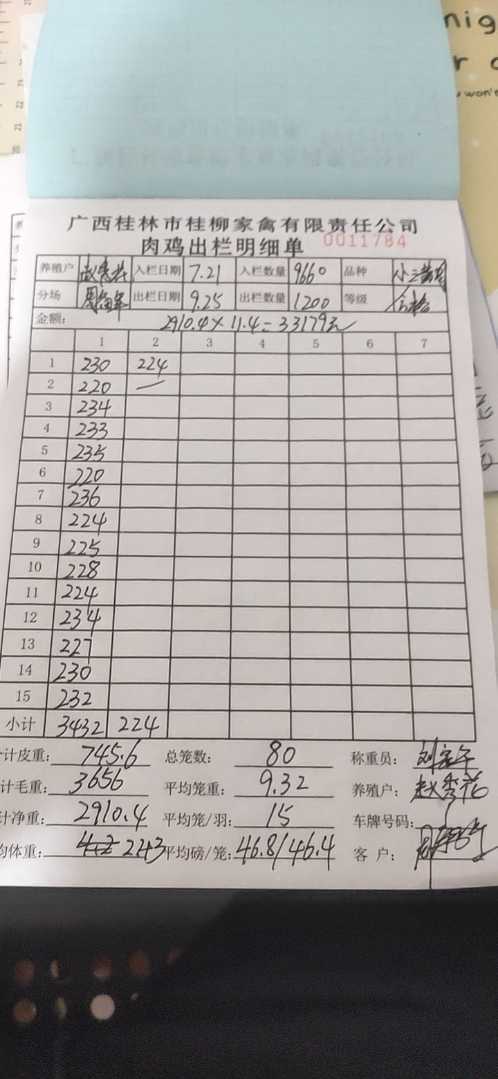 nig
r
won't
广西桂林市桂柳家禽有限责任公司
肉鸡出栏明细单 0011784
养殖户 赵秀花 入栏日期 7.21 入栏数量 9660 品种 小三黄
分场 出栏日期 9.25 出栏数量 1200 等级 合格
金额: 2910.4×11.4=33179元
1 2 3 4 5 6 7
1 230 224
2 220 —
3 234
4 233
5 235
6 220
7 236
8 224
9 225
10 228
11 224
12 234
13 227
14 230
15 232
小计 3432 224
计皮重: 745.6 总笼数: 80 称重员:
计毛重: 3656 平均笼重: 9.32 养殖户: 赵秀花
计净重: 2910.4 平均笼/羽: 15 车牌号码:
均体重: 243 平均磅/笼: 46.8/46.4 客户: